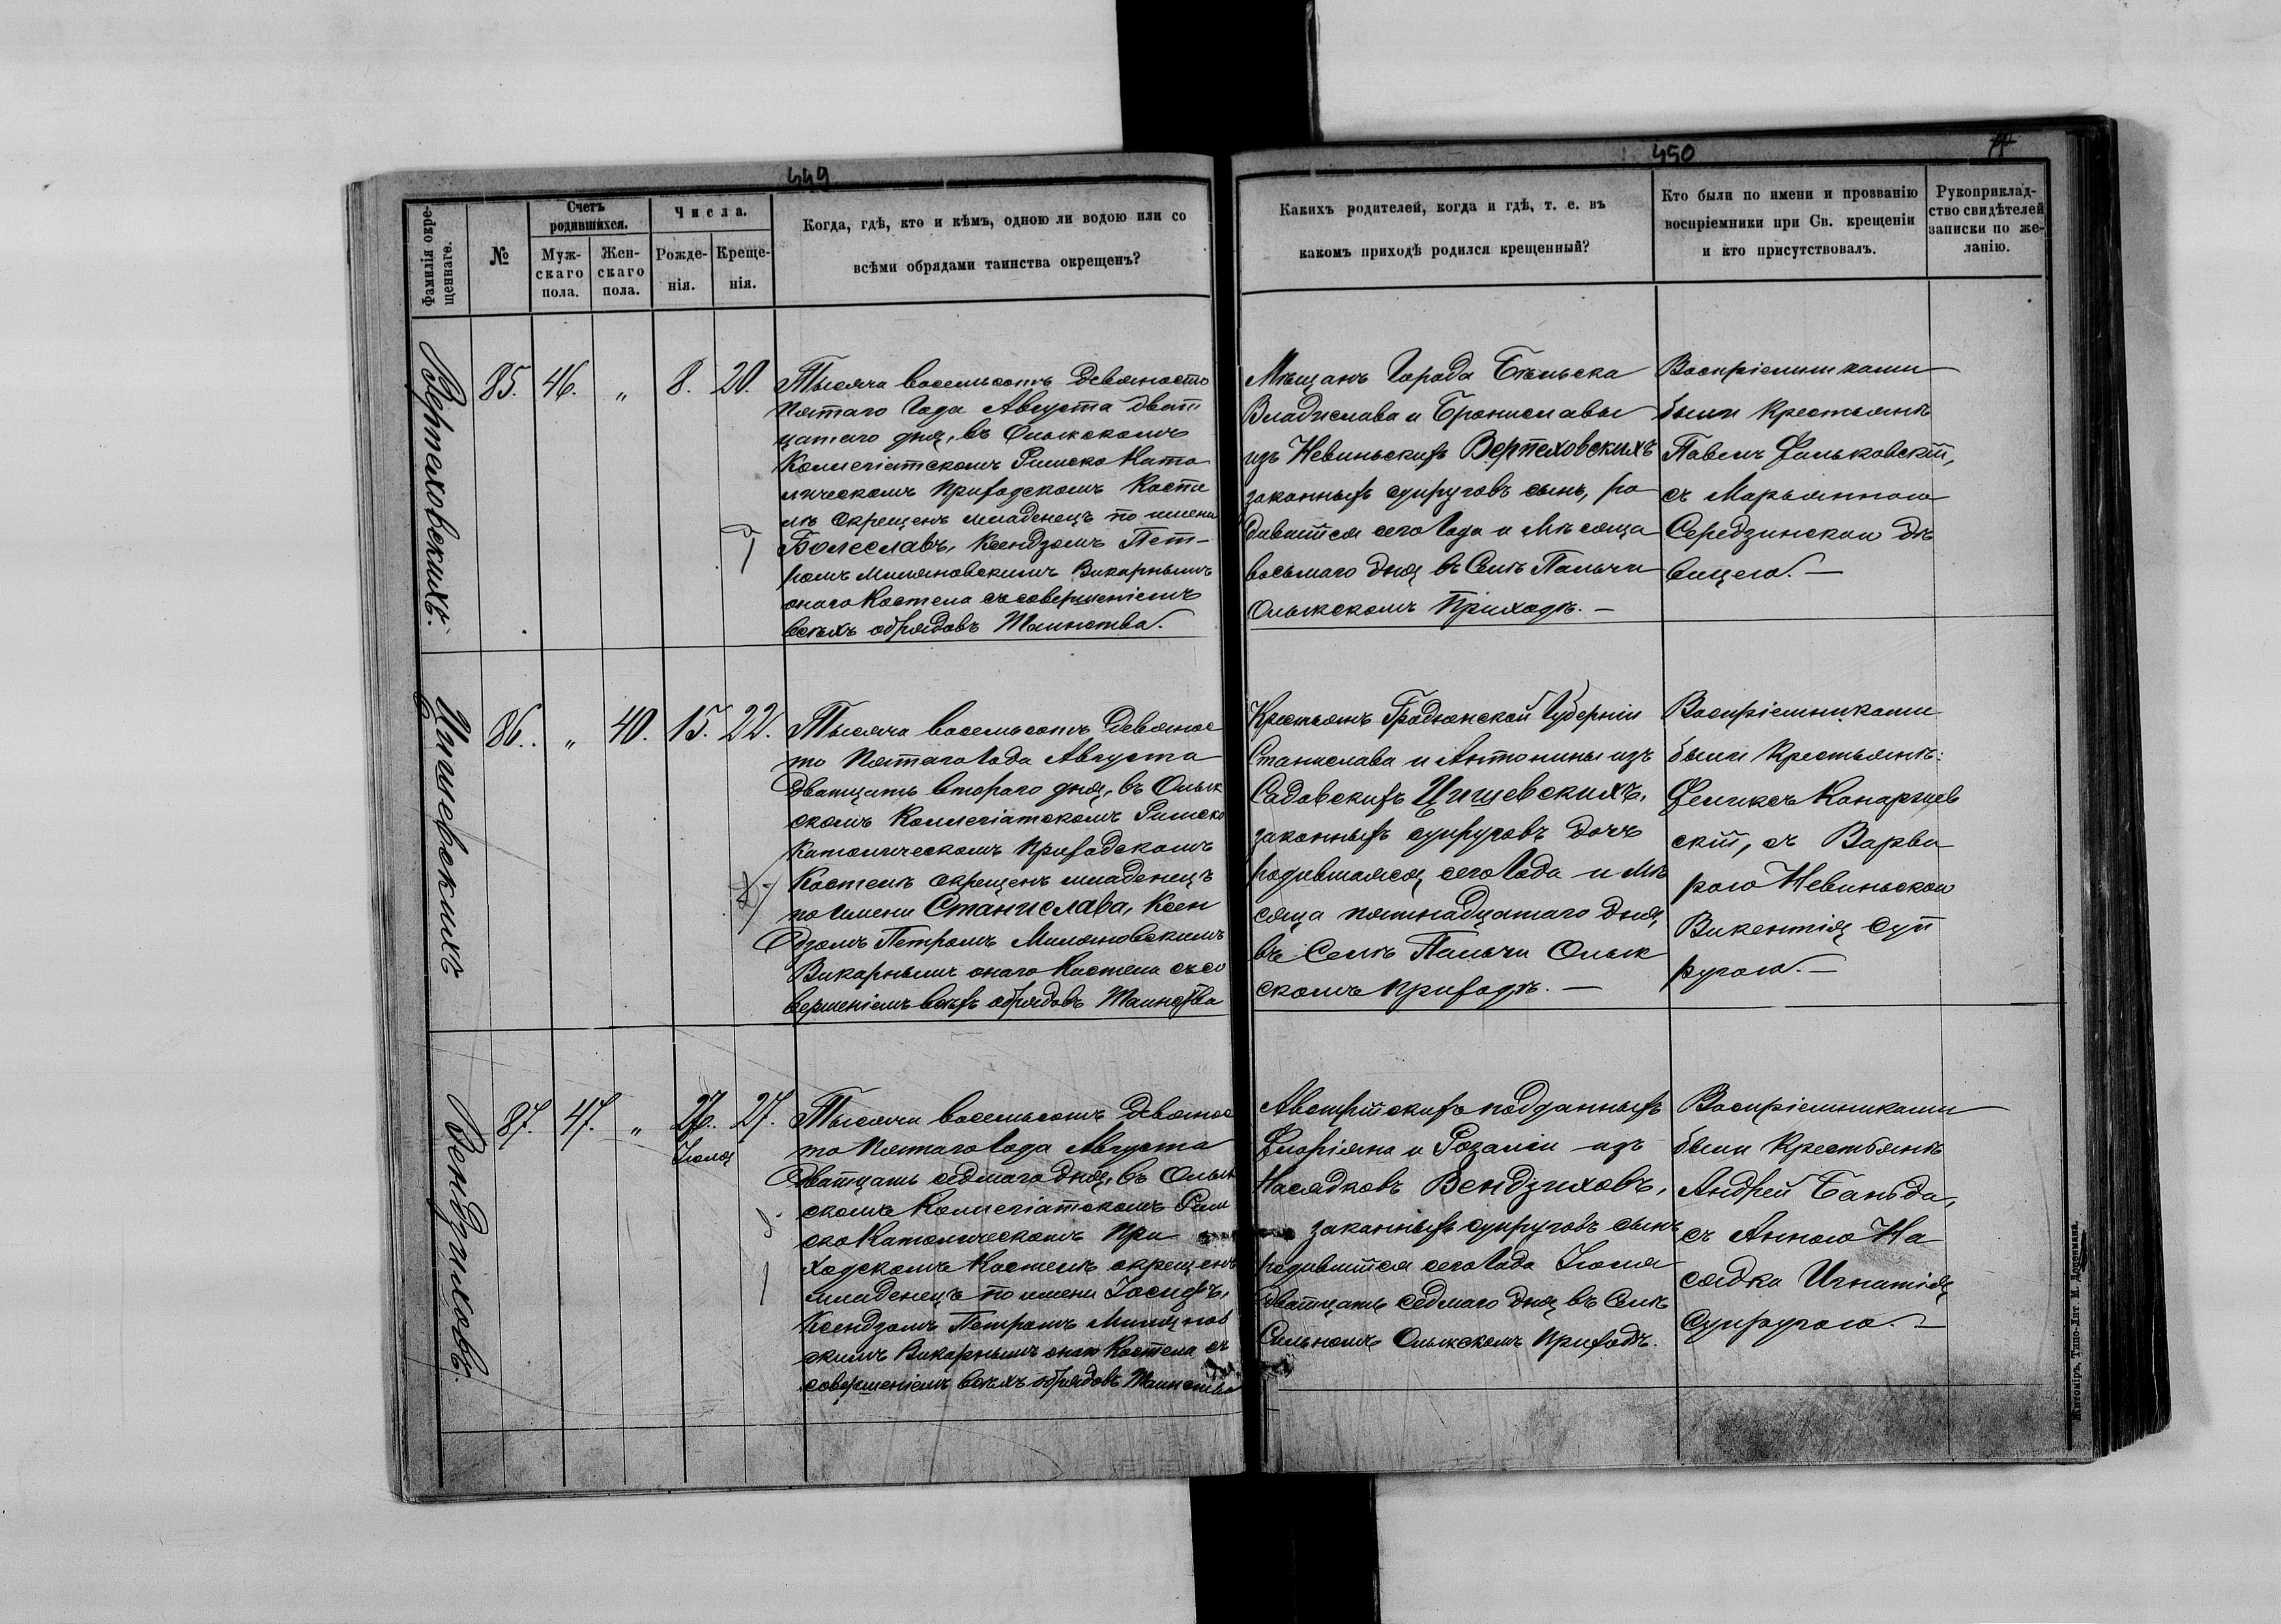 449
Фамилія окре-
щеннаго.
№
Счетъ
родившихся.
Муж-
скаго
пола.
Жен-
скаго
пола.
Числа.
Рожде-
нія.
Креще-
нія.
Когда, гдѣ, кто и кѣмъ, одною ли водою или со
всѣми обрядами таинства окрещенъ?
Верпеховскихъ.
85.
46.
„
8.
20.
Тысяча восемьсотъ девяносто
пятаго Года Августа дват
цатаго дня, въ Олыкскомъ
Коллегіатскомъ Римско Като
лическомъ Приходскомъ Косте
лѣ окрещенъ младенецъ по имени
Болеславъ, Ксендзомъ Пет-
ромъ Миляновскимъ Викарнымъ
онаго Костела съ совершеніемъ
всѣхъ обрядовъ Таинства.
Цишевскихъ
86.
„
40.
15.
22.
Тысяча восемьсотъ девянос
то Пятаго Года Августа
Дватцать втораго дня, въ Олык
скомъ Коллегіатскомъ Римско
Католическомъ Приходскомъ
Костелѣ окрещенъ младенецъ
по имени Станислава, Ксен
дзомъ Петромъ Миляновскимъ
Викарнымъ онаго Костела съ со
вершеніемъ всѣхъ обрядовъ Таинства
Вендзиховъ.
87.
47.
„
Іюля
27.
Тысяча восемьсотъ девянос
то Пятаго Года Августа
Дватцать седмаго дня, въ Олык
скомъ Коллегіатскомъ Рим
ско Католическомъ При
ходскомъ Костелѣ окрещенъ
младенецъ по имени Іосифъ,
Ксендзомъ Петромъ Милянов
скимъ Викарнымъ онаго Костела съ
совершеніемъ всѣхъ обрядовъ Таинства
450
Какихъ родителей, когда и гдѣ, т. е. въ
какомъ приходѣ родился крещенный?
Кто были по имени и прозванію
воспріемники при Св. крещеніи
и кто присутствовалъ.
Рукоприклад-
ство свидѣтелей
записки по же-
ланію.
Мѣщанъ Города Бѣльска
Владислава и Брониславы
изъ Невиньскихъ Верпеховскихъ
законныхъ супруговъ сынъ, ро
дившійся сего Года и Мѣсяца
восьмаго дня въ Селѣ Пальчи
Олыкскомъ Приходѣ.—
Воспріемниками
были Крестьянѣ
Павелъ Фильковскій,
съ Марьянною
Середзинскою дѣ
вицею.—
Крестьянъ Гродненской Губерніи
Станислава и Антонины изъ
Садовскихъ Цишевскихъ,
законныхъ супруговъ дочь
родившаяся, сего Года и Мѣ
сяца пятнадцатаго дня,
въ Селѣ Пальчи Олык
скомъ Приходѣ.—
Воспріемниками
были Крестьянѣ:
Феликсъ Конаржев
скій, съ Варва
рою Невиньскою
Викентія суп
ругою.—
Австрійскихъ подданныхъ
Флоріяна и Розаліи изъ
Насядковъ Вендзиховъ,
законныхъ супруговъ сынъ
родившійся сего Года Іюля
дватцать седмаго дня въ Селѣ
Сильномъ Олыкскомъ Приходѣ.
Воспріемниками
были Крестьянѣ
Андрей Баньда,
съ Анною На
сядка Игнатія
Супругою.—
Житоміръ, Типо-Лит. М. Дененмана.